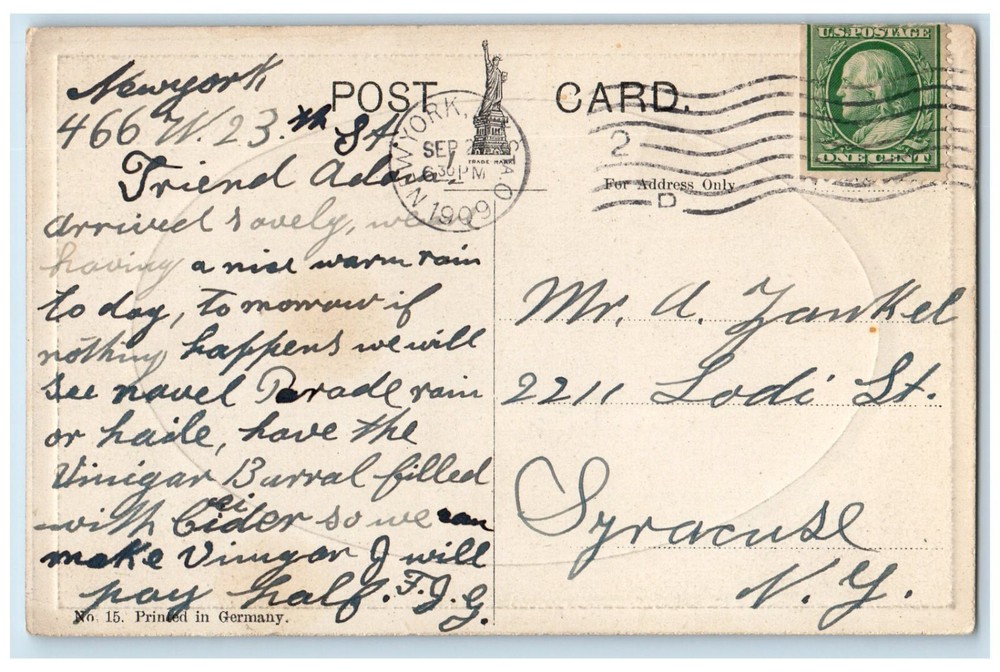 Newyork
466 W. 23.th St
Friend Adam
arrived savely, we
having a nise warm rain
to day, to morrow if
nothing happens we will
see navel Parade rain
or haile, have the
Vinigar Barral filled
with Ceider so we can
make Vinigar I will
pay half. F.J.G.
No. 15. Printed in Germany.
POST CARD.
TRADE MARK
NEW YORK,
SEP 2
6 30 PM
1909
2
D
U.S. POSTAGE
ONE CENT
For Address Only
Mr. A. Yankel
2211 Lodi St.
Syracuse
N.Y.